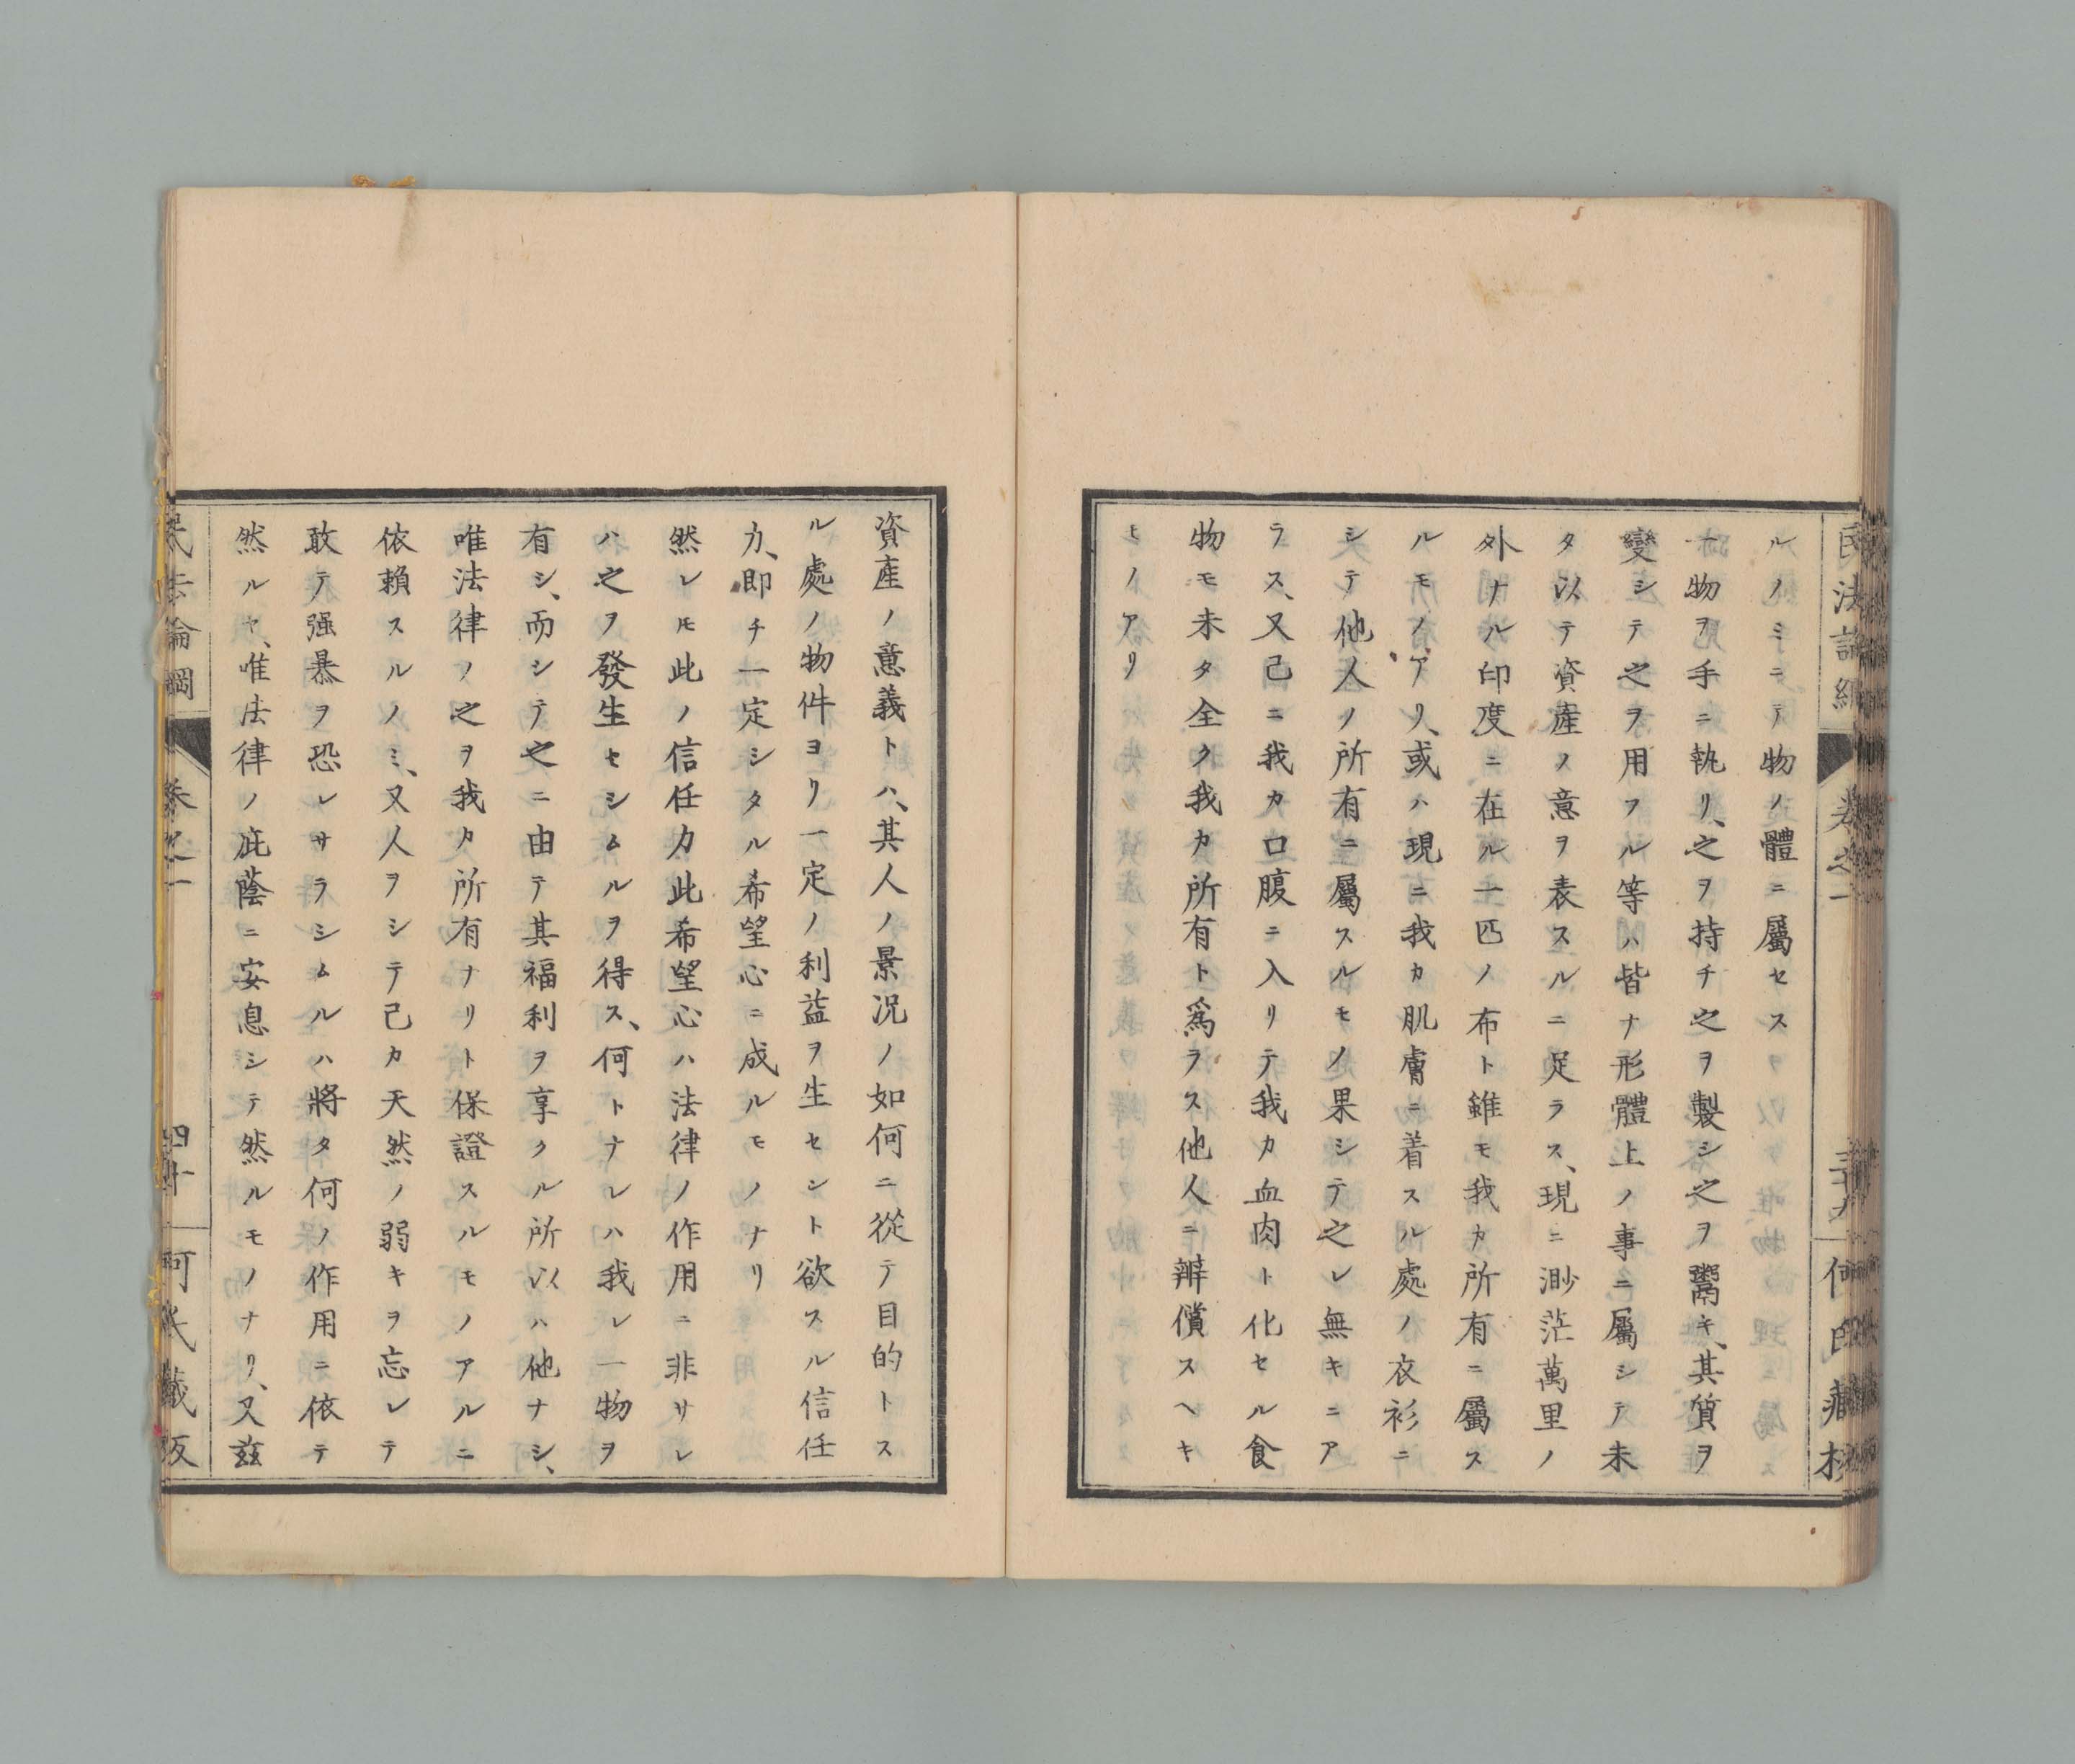 民法論綱　卷之一　三十九　何氏藏板
ルノミニテ物ノ體ニ屬セス
一物ヲ手ニ執リ、之ヲ持チ之ヲ製シ之ヲ鬻キ、其質ヲ
變シテ之ヲ用フル等ハ皆ナ形體上ノ事ニ屬シテ未
タ以テ資産ノ意ヲ表スルニ足ラス、現ニ渺茫萬里ノ
外ナル印度ニ在ル一匹ノ布ト雖モ我カ所有ニ屬ス
ルモノアリ、或ハ現ニ我カ肌膚ニ着スル處ノ衣衫ニ
シテ他人ノ所有ニ屬スルモノ果シテ之レ無キニア
ラス、又己ニ我カ口腹ニ入リテ我カ血肉ト化セル食
物モ未タ全ク我カ所有ト爲ラス他人ニ辧償スヘキ
ヒノアリ
資産ノ意義トハ、其人ノ景况ノ如何ニ從テ目的トス
ル處ノ物件ヨリ一定ノ利益ヲ生セシト欲スル信任
力、即チ一定シタル希望心ニ成ルモノナリ
然レ𪜈此ノ信任力此希望心ハ法律ノ作用ニ非サレ
ハ之ヲ發生セシムルヲ得ス、何トナレハ我レ一物ヲ
有シ、而シテ之ニ由テ其福利ヲ享クル所以ハ他ナシ、
唯法律ノ之ヲ我カ所有ナリト保證スルモノアルニ
依賴スルノミ、又人ヲシテ己カ天然ノ弱キヲ忘レテ
敢テ强暴ヲ恐レサラシムルハ將タ何ノ作用ニ依テ
然ルヤ、唯法律ノ庇蔭ニ安息シテ然ルモノナリ、又茲
民法論綱　卷之一　四十　何氏藏板